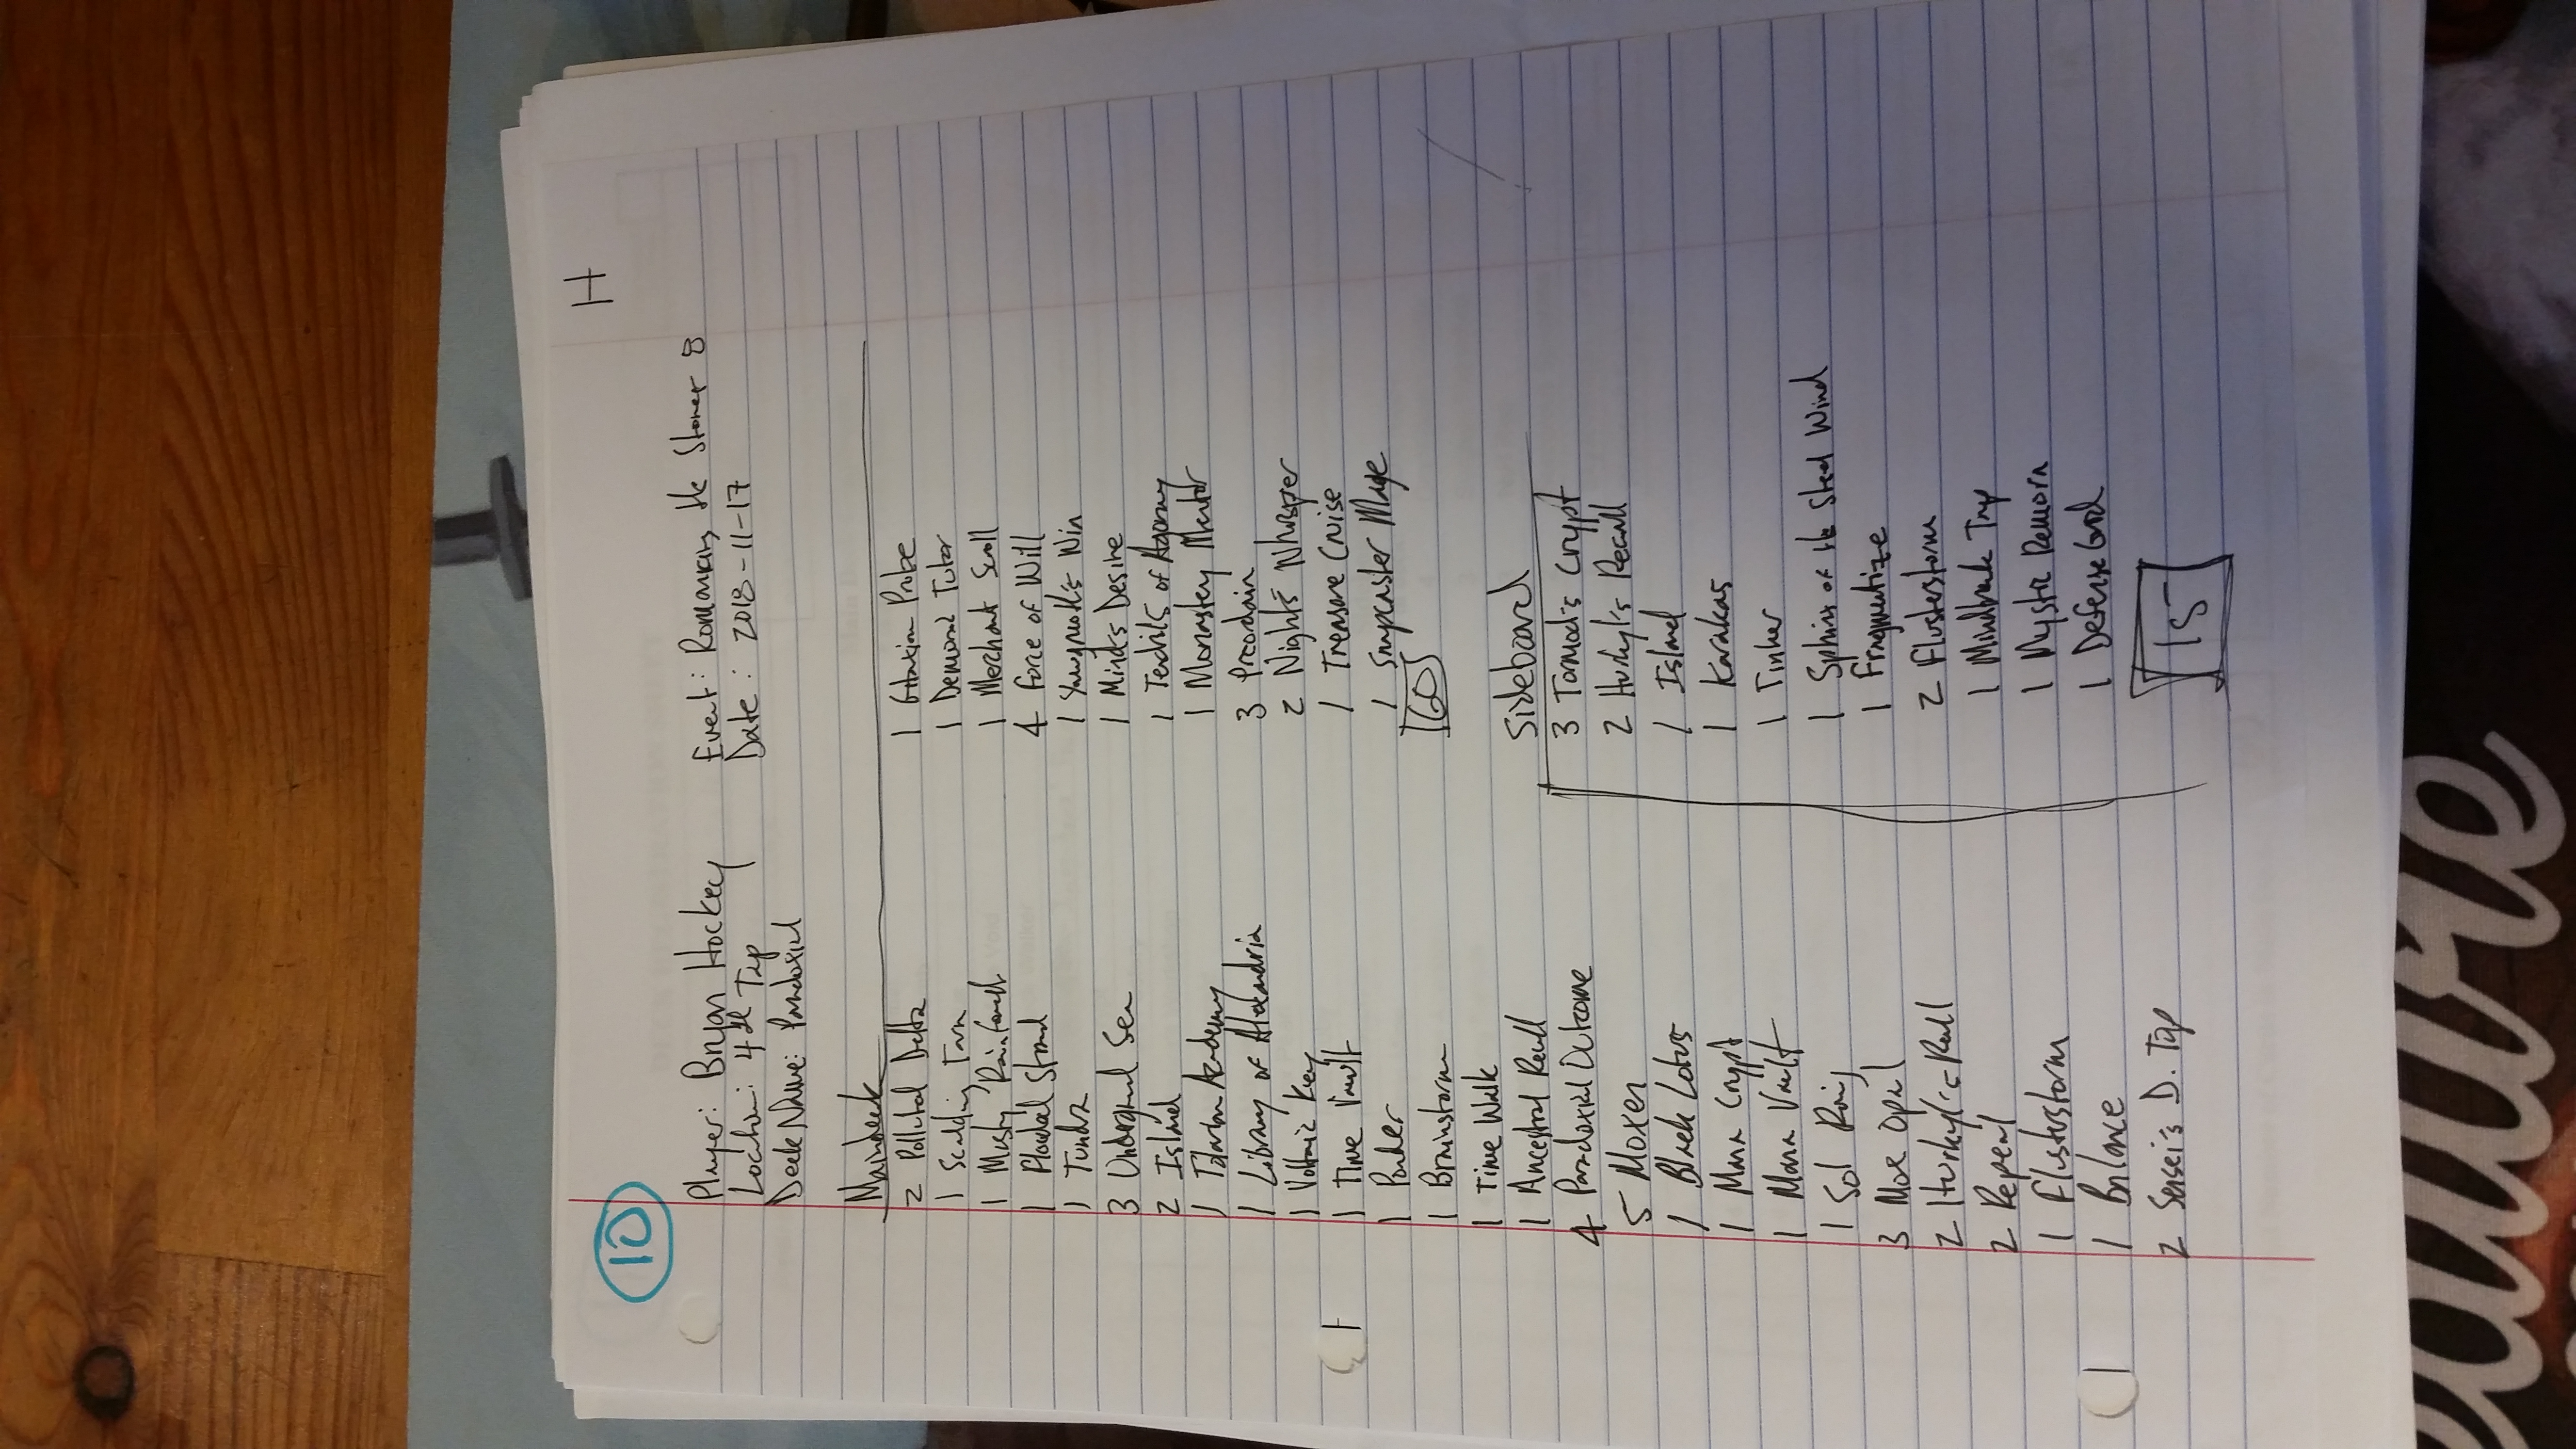 10
H
Player: Bryan Hockey
Event: Romancing the Stones 8
Location: 4th Tap
Date: 2018-11-17
Deck Name: Paradoxical
Maindeck
2 Polluted Delta
1 Scalding Tarn
1 Misty Rainforest
1 Flooded Strand
1 Tundra
3 Underground Sea
2 Island
1 Tolarian Academy
1 Library of Alexandria
1 Voltaic Key
1 Time Vault
1 Ponder
1 Brainstorm
1 Time Walk
1 Ancestral Recall
4 Paradoxical Outcome
5 Moxen
1 Black Lotus
1 Mana Crypt
1 Mana Vault
1 Sol Ring
3 Mox Opal
2 Hurkyl's Recall
2 Repeal
1 Flusterstorm
1 Balance
2 Sensei's D. Top
1 Gitaxian Probe
1 Demonic Tutor
1 Merchant Scroll
4 Force of Will
1 Yawgmoth's Win
1 Mind's Desire
1 Tendrils of Agony
1 Monastery Mentor
3 Preordain
2 Night's Whisper
1 Treasure Cruise
1 Snapcaster Mage
60
Sideboard
3 Tormod's Crypt
2 Hurkyl's Recall
1 Island
1 Karakas
1 Tinker
1 Sphinx of the Steel Wind
1 Fragmentize
2 Flusterstorm
1 Mindbreak Trap
1 Mystic Remora
1 Defense Grid
15